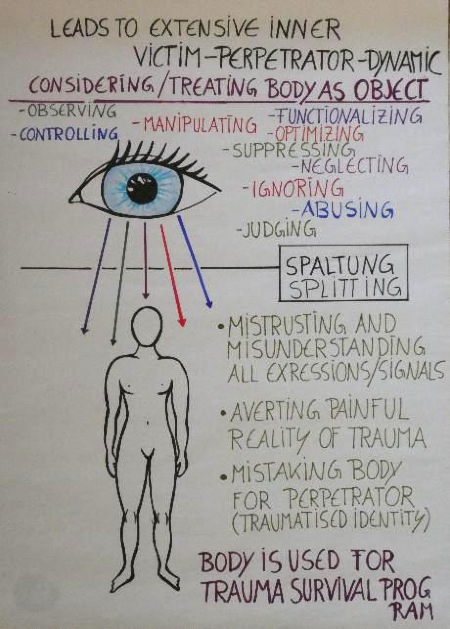 LEADS TO EXTENSIVE INNER
VICTIM-PERPETRATOR-DYNAMIC
CONSIDERING/TREATING BODY AS OBJECT
-OBSERVING
-CONTROLLING
-MANIPULATING
-FUNCTIONALIZING
-OPTIMIZING
-SUPPRESSING
-NEGLECTING
-IGNORING
-ABUSING
-JUDGING
SPALTUNG
SPLITTING
• MISTRUSTING AND
MISUNDERSTANDING
ALL EXRESSIONS/SIGNALS
• AVERTING PAINFUL
REALITY OF TRAUMA
• MISTAKING BODY
FOR PERPETRATOR
(TRAUMATISED IDENTITY)
BODY IS USED FOR
TRAUMA SURVIVAL PROG
RAM